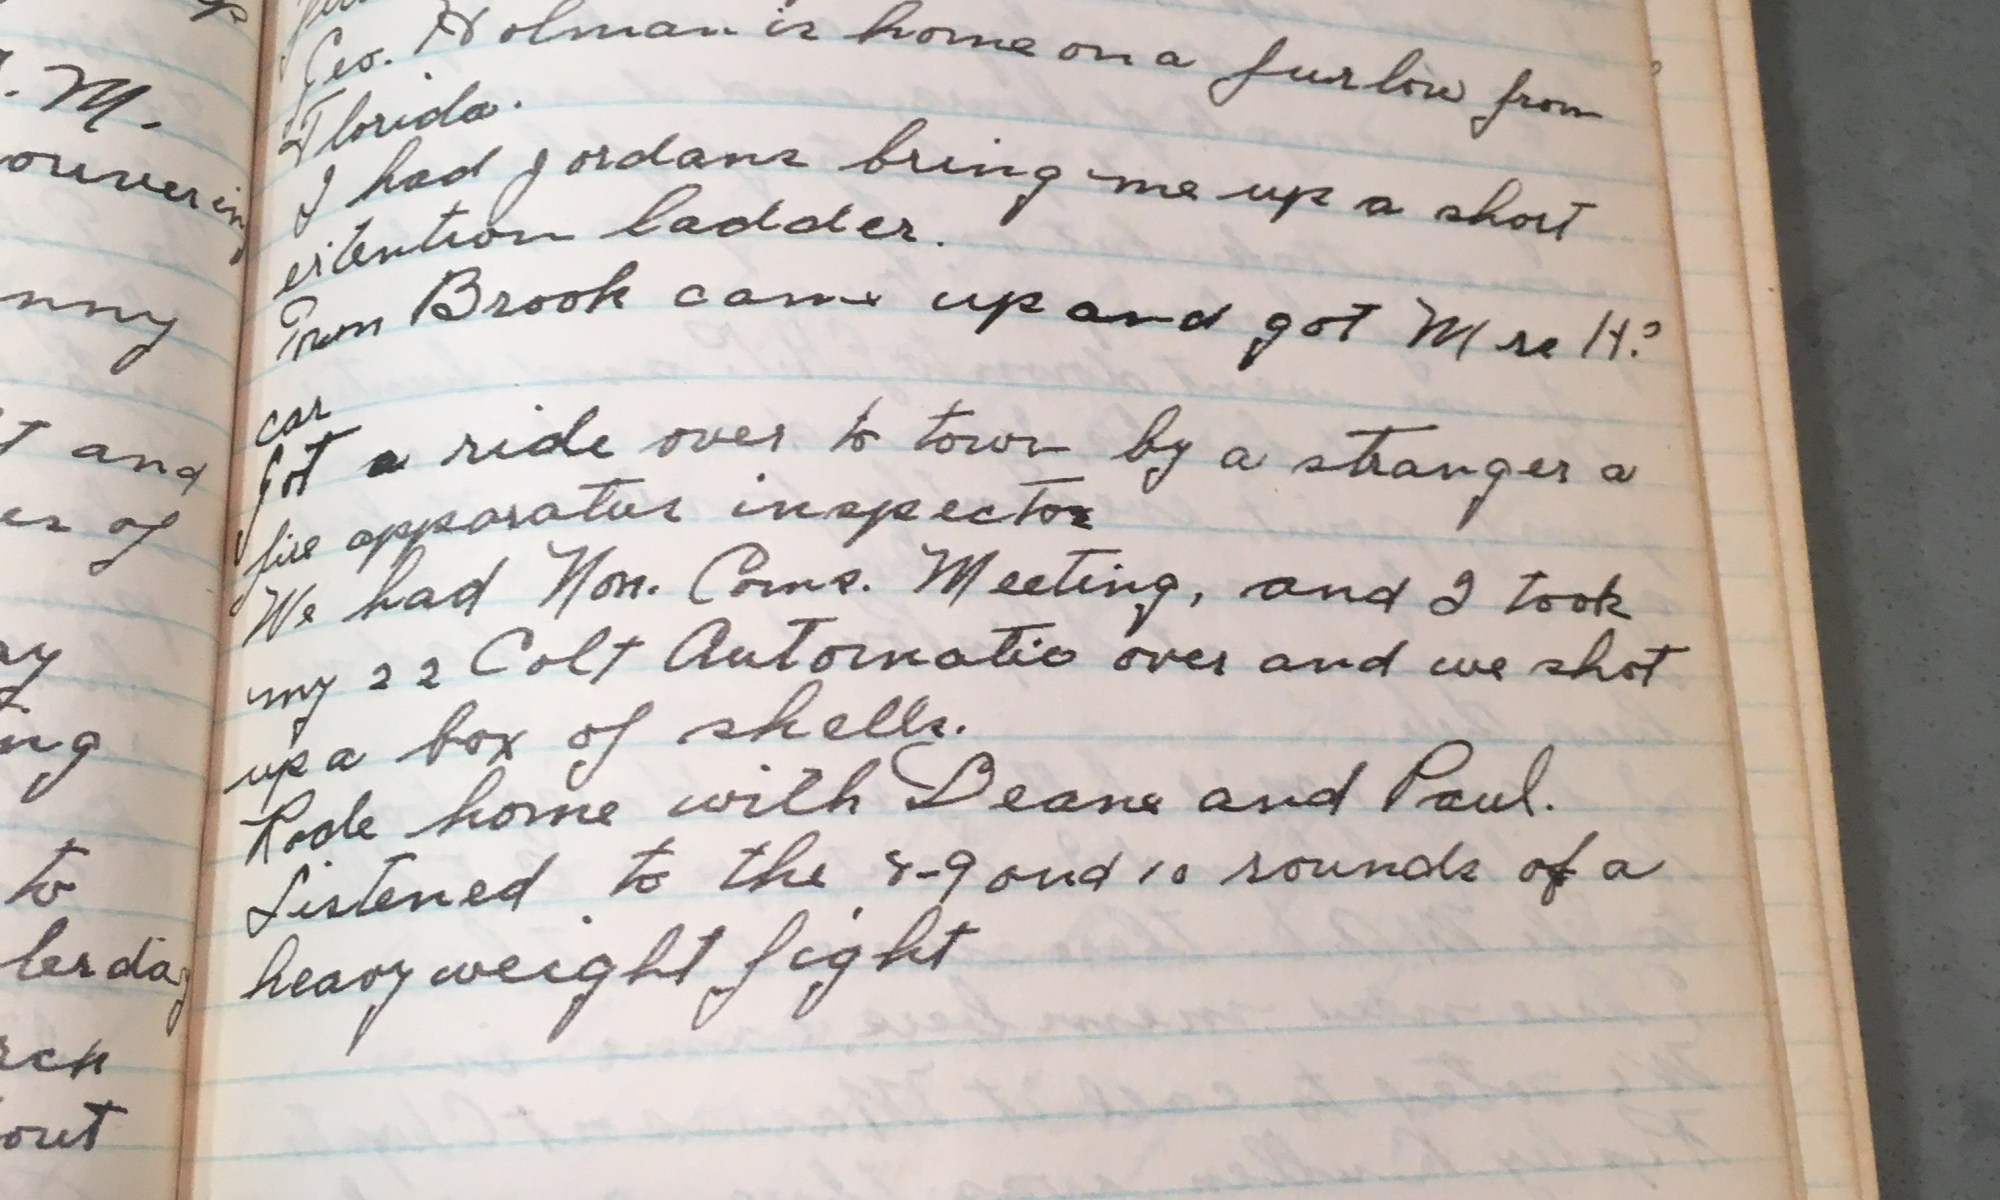 p
. M.
ouvering
nny
t and
es of
ay
ng
to
lerday
rch
out
Geo. Holman is home on a furlow from
Florida.
I had Jordans bring me up a short
extention ladder.
Brook came up and got Mrs H.s
car
Got a ride over to town by a stranger a
fire apparatus inspector
We had Non. Coms. Meeting, and I took
my 22 Colt Automatic over and we shot
up a box of shells.
Rode home with Deane and Paul.
Listened to the 8-9 and 10 rounds of a
heavy weight fight